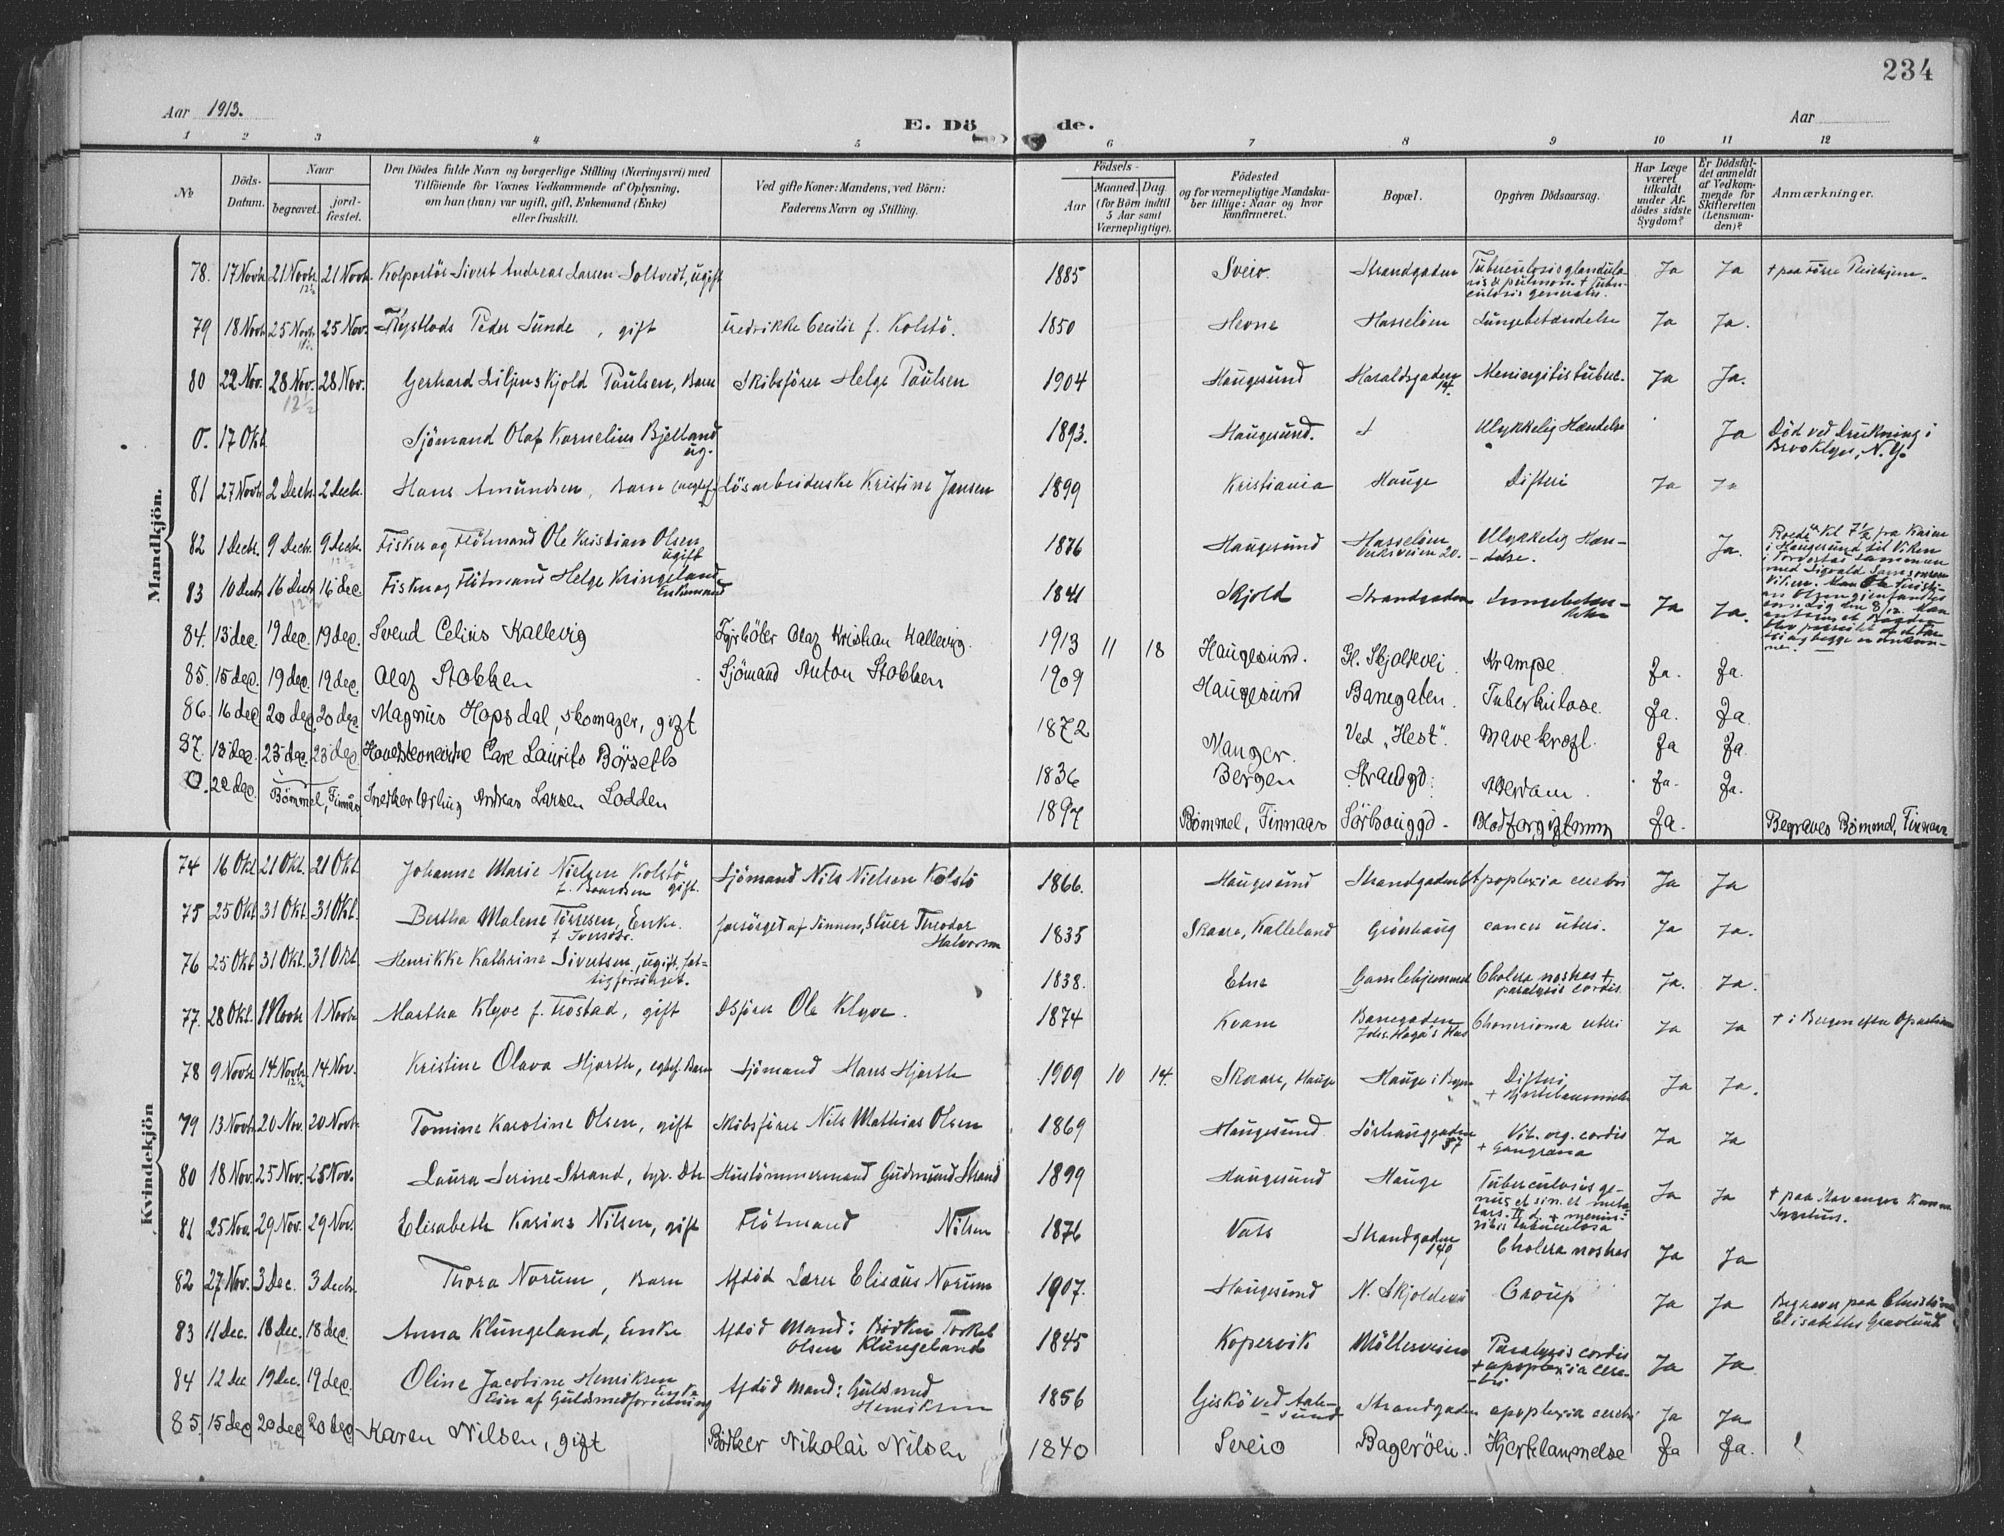 234
Aar 1913.
E. Dö de.
Aar
1 2 3 4 5 6 7 8 9 10 11 12
No
Döds-Datum.
Naar
begravet.
jord-fæstet.
Den Dödes fulde Navn og borgerlige Stilling (Næringsvei) med
Tilföiende for Voxnes Vedkommende af Oplysning,
om han (hun) var ugift, gift, Enkemand (Enke)
eller fraskilt.
Ved gifte Koner: Mandens, ved Börn:
Faderens Navn og Stilling.
Födsels-
Aar
Maaned. Dag
(for Börn indtil
5 Aar samt
Værnepligtige).
Födested
og for værnepligtige Mandska-
ber tillige: Naar og hvor
konfirmeret.
Bopæl.
Opgiven Dödsaarsag.
Har Læge
været
tilkaldt
under Af-
dödes sidste
Sygdom?
Er Dödsfal-
det anmeldt
af Vedkom-
mende for
Skifteretten
(Lensman-
den)?
Anmærkninger.
Mandkjön.
78. 17 Novb. 21 Novb. 12½ 21 Novb. Kolportör Sivert Andreas Larsen Soltvedt, ugift 1885 Sveio. Strandgaden Tuberculosis glandula-
ris & pulmon. + Tuber-
culosis generalis. Ja Ja + paa Förre Pleiehjem.
79 18 Novb. 25 Novb. 25 Nov. Peder Sunde, gift Fredrikke Cecilie f. Kolstö. 1850 Hevne Hasselöen Lungebetændelse Ja Ja.
80 22 Nov. 28 Nov. 12½ 28 Nov. Gerhard Liljenskjold Paulsen, Barn Skibsförer Helge Paulsen 1904 Haugesund Haraldsgaden 14. Meningitis tuberc. Ja Ja.
0. 17 Okt Sjömand Olaf Kornelius Bjelland ug. 1893. Haugesund. + Ulykkelig Hændelse Ja Död ved Drukning i
Brooklyn, N.Y.
81 27 Novb. 2 Decb. 2 Decb. Hans Amundsen, Barn Lösarbeiderske Kristine Jansen 1899 Kristiania Hauge Difteri Ja Ja
82 1 Decb. 9 Decb. 9 Decb. Fisker og Flötmand Ole Kristian Olsen ugift 1876 Haugesund Hasselöen 20. Ulykkelig Hæn-
delse. Ja. Roede Kl. 7½ fra Kaien
i Haugesund til Viken
i Torvestad sammen
med Sigvald
83 10 Decb. 16 Decb. 12½ 16 dec. Fisker og Flötmand Helge Kringeland Enkemand 1841 Skjold Strandgaden Lungebetæn-
delse Ja Ja.
84. 13 dec. 19 dec. 19 dec. Svend Celius Kallevig Fyrböter Olaf Kristian Kallevig. 1913 11 18 Haugesund. Gl. Skjoldvei Krampe Ja. Ja.
85. 15 dec. 19 dec. 19 dec. Olaf Stakken Sjömand Anton Stakken 1909 Haugesund Banegaten. Tuberkulose. Ja. Ja
86. 16 dec 20 dec. 20 dec. Magnus Hopsdal, skomager, gift 1872 Manger. Ved "Hest". Mavekræft. Ja Ja.
87. 13 dec. 23 dec. 23 dec Laurits Börseth 1836 Bergen Strandgd: Ja. Ja.
0. 22 dec. Bömmel, Finnaas Snedkerlærling Andreas Larsen Lodden 1897 Bömmel, Finnaas Sörhauggd. Blodforgiftning Ja. Begraves Bömmel, Finnaas
Kvindekjön
74 16 Okt 21 Okt. 21 Okt. Johanne Marie Nielsen Kolstö gift. Sjömand Nils Nielsen Kolstö 1866. Haugesund Strandgaden Apoplexia cerebri Ja Ja
75 25 Okt 31 Okt 31 Okt. Bertha Malene Törresen, Enke. forsörget af Sönnen, Theodor
Halvorsen 1835 Skaare, Kalleland Grönhaug cancer uteri. Ja Ja.
76 25 Okt. 31 Okt. 31 Okt. Henrikke Kathrine Sivertsen, ugift, fat-
tigforsörget. 1838. Etne Gamlehjemmet Cholera nostras +
paralysis cordis. Ja. Ja.
77. 28 Okt. 1 Novb 1 Novb Martha Klyve f. Frostad, gift Ole Klyve. 1874 Kvam Banegaden Uteri Ja Ja + i Bergen efter Operation
78 9 Novb. 14 Novb. 12½ 14 Nov. Kristine Olava Hjorth, egtef. Barn Sjömand Hans Hjorth 1909 10 14. Skaare, Hauge Hauge i Byen Difteri
+ Hjertelammelse Ja Ja.
79 13 Novb. 20 Nov. 20 Novb. Tomine Karoline Olsen, gift Skibsförer Nils Mathias Olsen 1869 Haugesund Sörhauggaden 57 Vit. org. cordis
+ gangræna Ja Ja
80 18 Nov. 25 Nov. 25 Nov. Laura Serine Strand, Hustömmermand Gudmund Strand 1899 Haugesund Hauge Tuberculosis ge-
nus et sin. et meta-
tars. II d. + menin-
gitis tuberculosa Ja Ja + paa Stavanger Kommu
Sygehus.
81 25 Nov. 29 Nov. 29 Nov. Elisabeth Karine Nilsen, gift Flötmand Nilsen 1876 Vats Strandgaden 140 Cholera nostras Ja Ja
82 27 Nov. 3 Dec. 3 Decb. Thora Norum, Barn Afdöd Lærer Elisæus Norum 1907. Haugesund N. Skjoldevei Croup Ja Ja Begraves paa
83 11 Dec. 18 Dec. 12½ 18 dec. Anna Klungeland, Enke Afdöd Mand: Bödker Torkel
Olsen Klungeland 1845 Kopervik Möllerveien Paralysis cordis
+ apoplexia cere-
bri Ja Ja.
84 12 Dec 19 Dec. 12 19 dec. Oline Jacobine Henriksen Enke
Eier af Guldsmedforretning Afdöd Mand: Guldsmed
Henriksen 1856 Giskö ved Aale-
sund Strandgaden apoplexia cerebri Ja Ja
85. 15 dec 20 dec 12 20 dec. Karen Nilsen, gift Bödker Nikolai Nilsen 1840 Sveio Bageröen. Hjertelammelse Ja Ja.